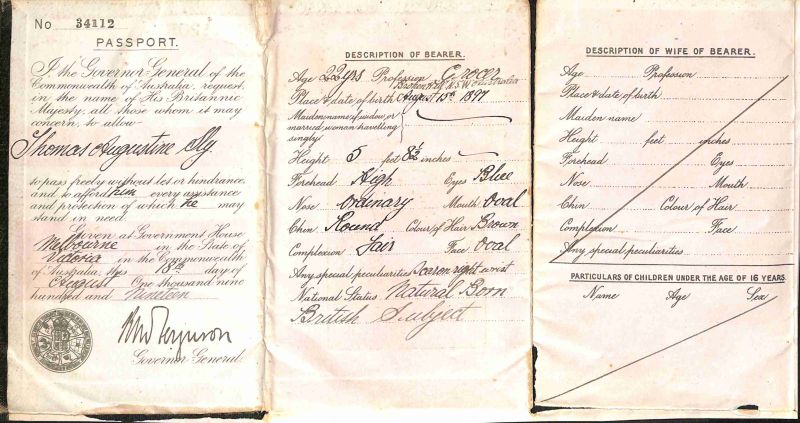 No 34112
PASSPORT.
I, the Governor-General of the
Commonwealth of Australia, request,
in the name of His Britannic
Majesty, all those whom it may
concern, to allow
Thomas Augustine Sly
to pass freely without let or hindrance,
and to afford him every assistance
and protection of which he may
stand in need.
Given at Government House
Melbourne in the State of
Victoria in the Commonwealth
of Australia, this 18th day of
August One thousand nine
hundred and Nineteen
Governor General.
DESCRIPTION OF BEARER.
Age 22 yrs Profession Grocer
Broken Hill N.S.W. Australia
Place & date of birth August 15th 1897
Maiden name if widow or
married woman travelling
singly
Height 5 feet 8½ inches
Forehead High Eyes Blue
Nose Ordinary Mouth Oval
Chin Round Colour of Hair Brown
Complexion Fair Face Oval
Any special peculiarities Scar on right wrist
National Status Natural Born
British Subject
DESCRIPTION OF WIFE OF BEARER.
Age Profession
Place & date of birth
Maiden name
Height feet inches
Forehead Eyes
Nose Mouth
Chin Colour of Hair
Complexion Face
Any special peculiarities
PARTICULARS OF CHILDREN UNDER THE AGE OF 16 YEARS
Name Age Sex